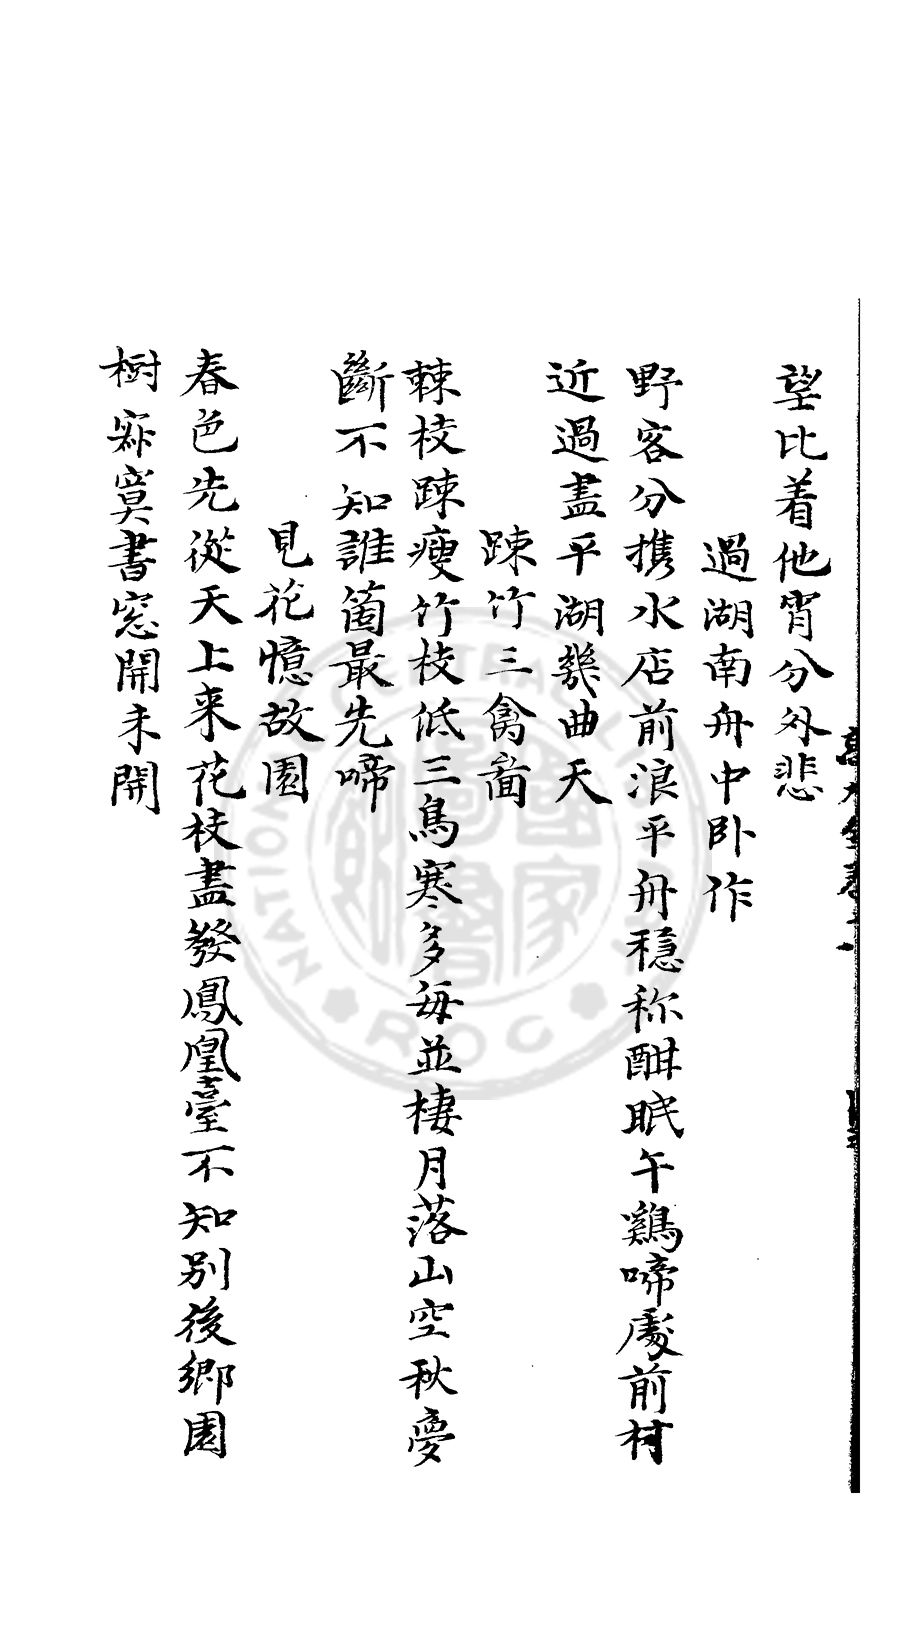 望比着他宵分外悲
過湖南舟中卧作
野客分携水店前浪平舟穏称酣眠午鷄啼處前村
近過盡平湖幾曲天
踈竹三禽啚
棘枝踈瘦竹枝低三鳥寒多每並棲月落山空秋夢
斷不知誰箇最先啼
見花憶故園
春色先從天上来花枝盡發鳳凰臺不知別後鄉園
樹寂寞書窓開未開
NATIONAL CENTRAL LIBRARY
ROC